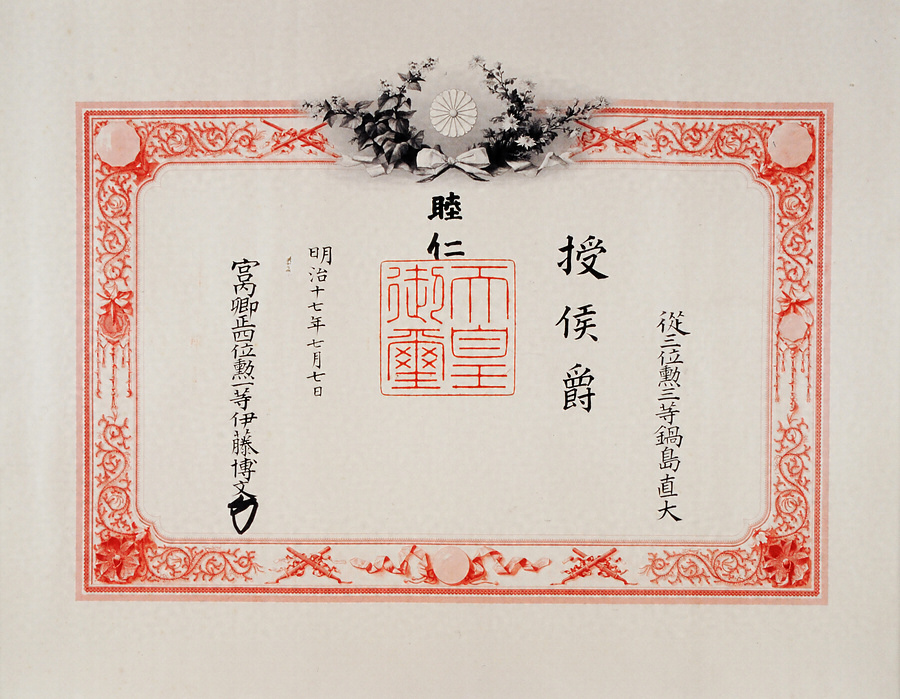 從三位勲三等鍋島直大
授侯爵
睦仁
天皇御璽
明治十七年七月七日
宮内卿正四位勲一等伊藤博文